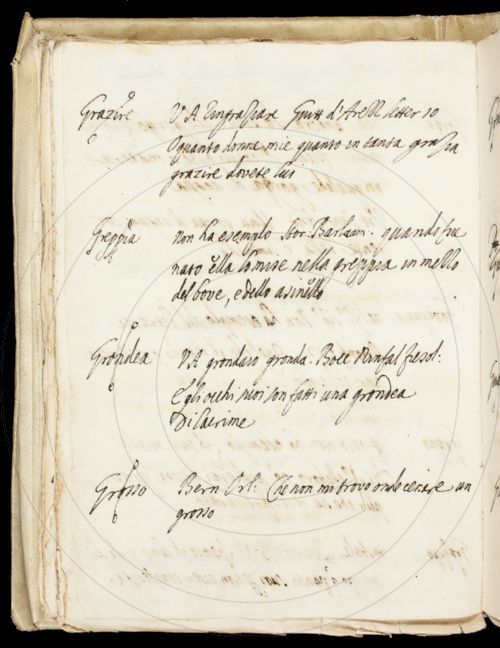 Grazire V A Ringraziare Guitt d'Arezz letter 10
O quanto donne mie quanto in tanta grazia
grazire dovete lui
Greppia non ha esemplo Stor: Barlaam. quando fue
nato ella lo mise nella greppia in mezzo
del bove, e dello asinello
Grondea V A grondaio gronda. Bocc Ninfal fiesol:
E gli occhi suoi son fatti una grondea
Di lacrime
Grosso Bern Orl: Che non mi trovo onde cenare un
grosso